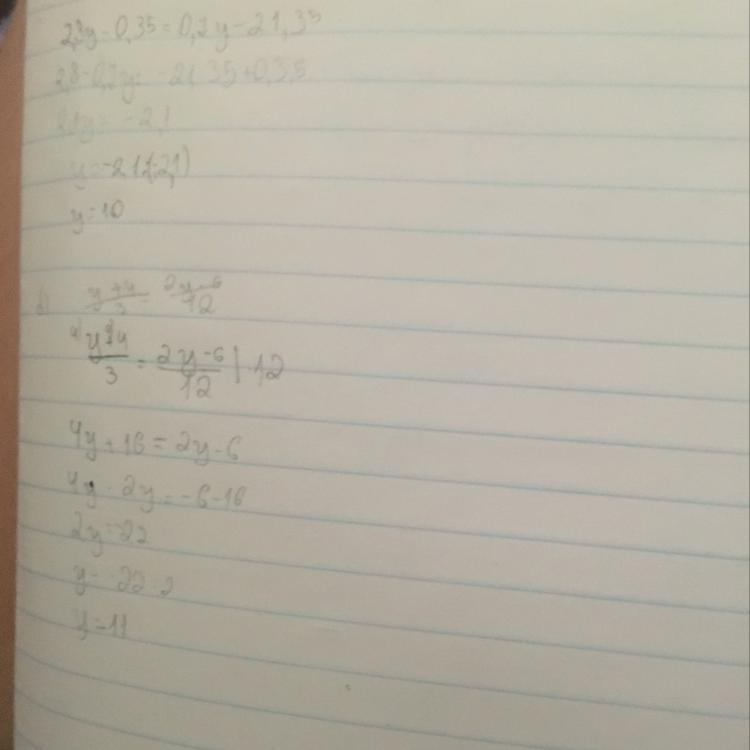 2,8y - 0,35 = 0,7y - 21,35
2,8 - 0,7y = -21,35 + 0,35
y = 10
d) y+4/3 = 2y-6/12
4) y+4/3 = 2y-6/12 | · 12
4y + 16 = 2y - 6
4y - 2y = -6 - 16
2y = -22
y = -22 : 2
y = 11